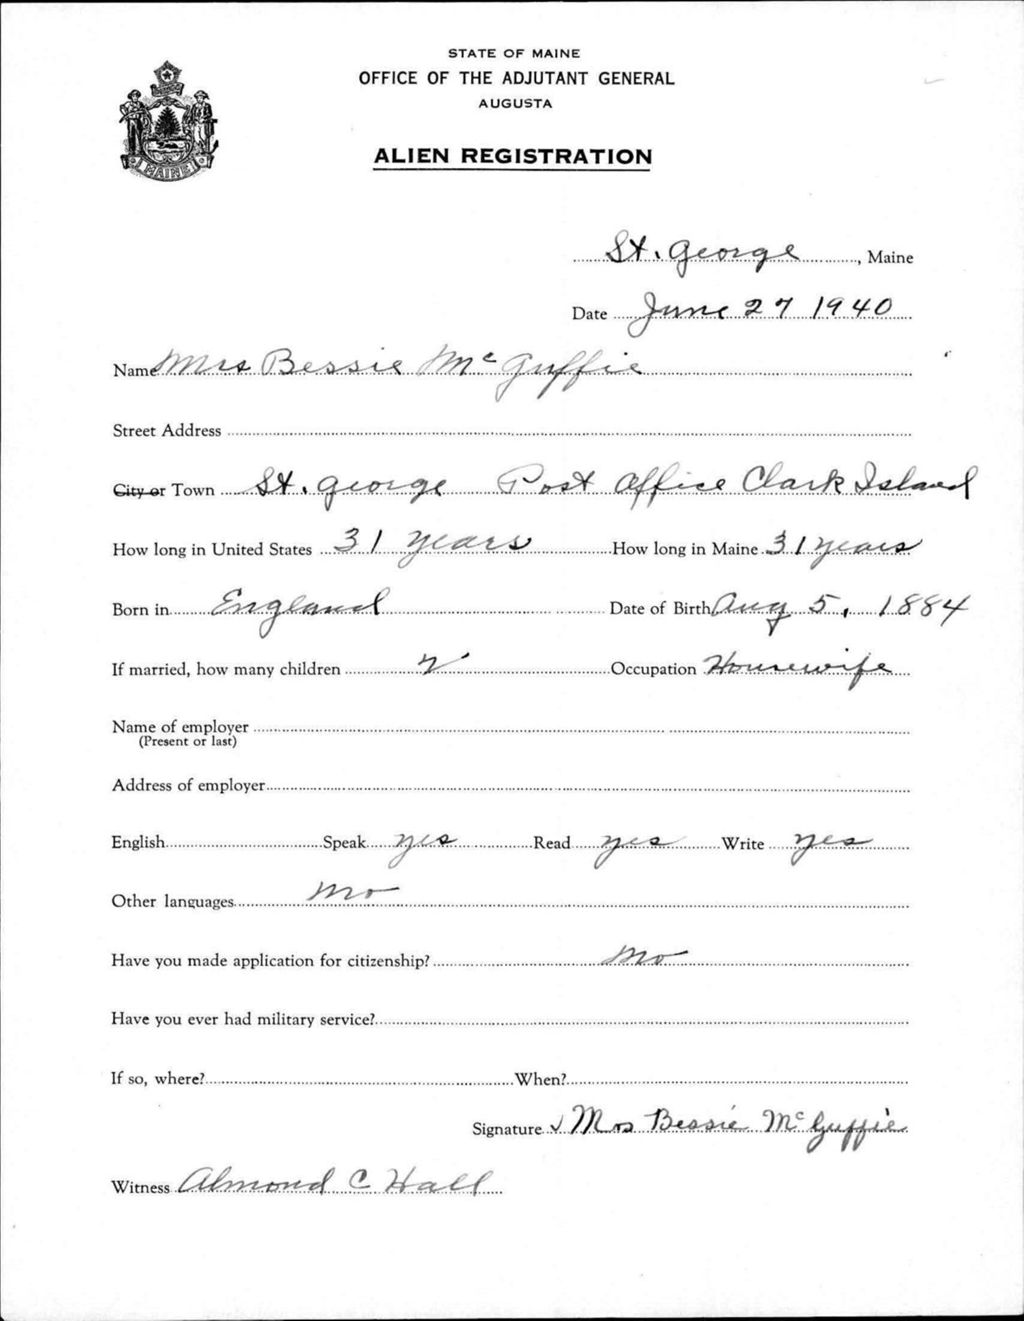 STATE OF MAINE
OFFICE OF THE ADJUTANT GENERAL
AUGUSTA
ALIEN REGISTRATION
MAINE
St. George, Maine
Date June 27 1940
Name Mrs Bessie McGuffie
Street Address
City or Town St. George Post Office Clark Island
How long in United States 31 years How long in Maine 31 years
Born in England Date of Birth Aug 5, 1884
If married, how many children 2 Occupation Housewife
Name of employer
(Present or last)
Address of employer
English Speak yes Read yes Write yes
Other languages no
Have you made application for citizenship? no
Have you ever had military service?
If so, where? When?
Signature √ Mrs Bessie McGuffie
Witness Almond C Hall